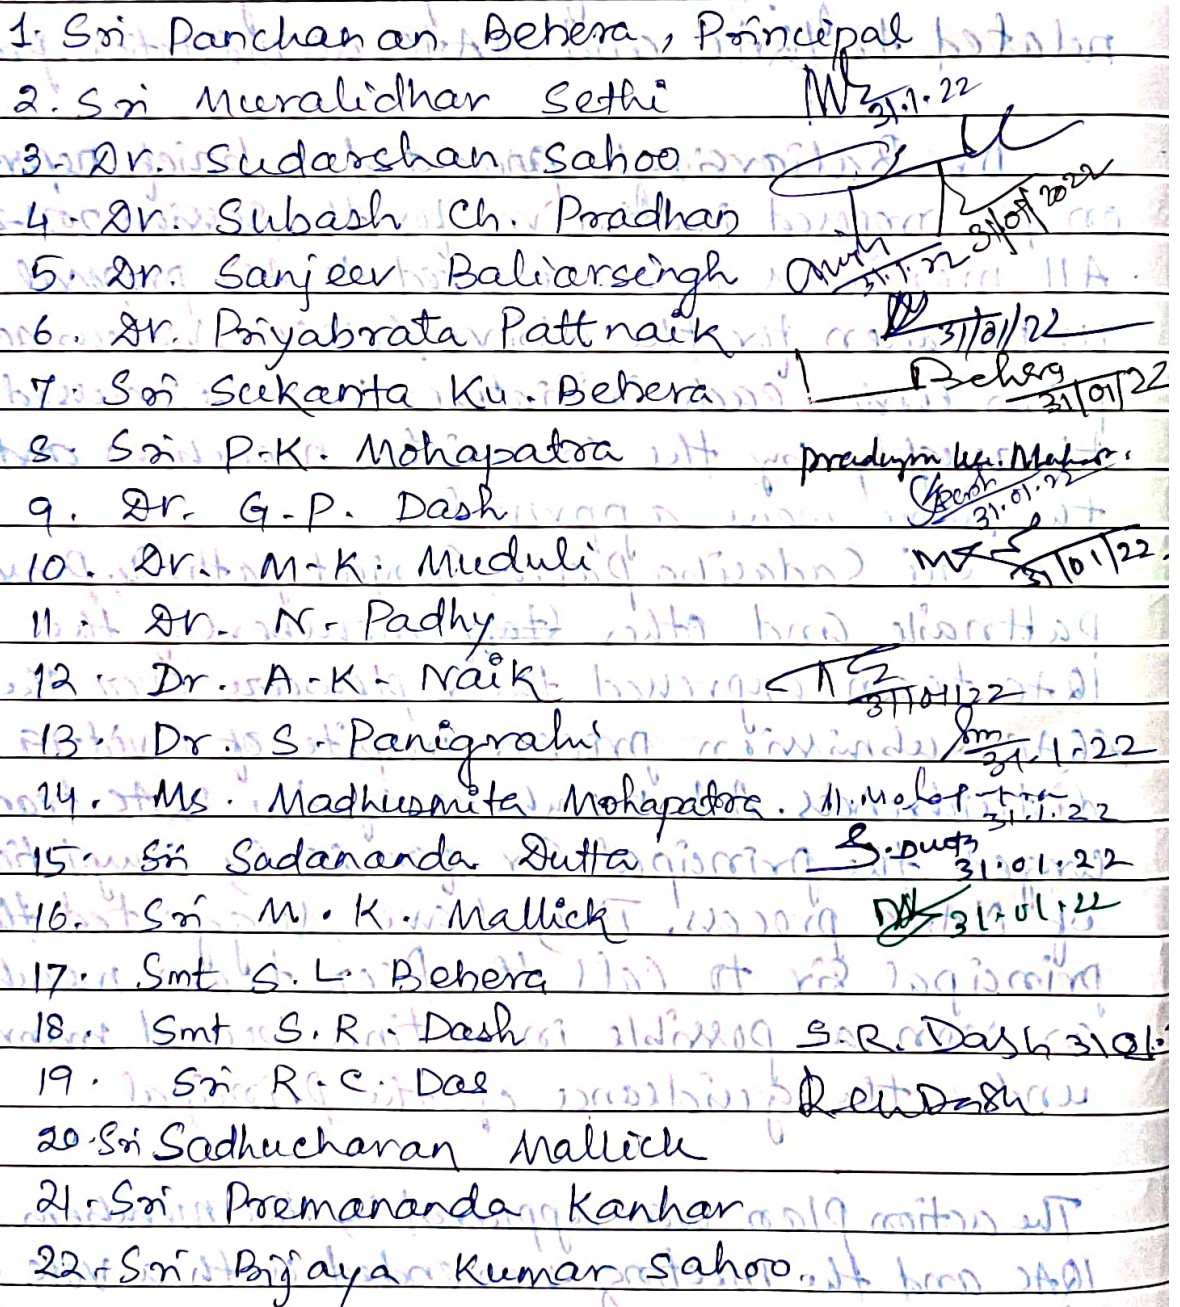 1. Sri Panchanan Behera, Principal
2. Sri Muralidhar Sethi 31.1.22
3. Dr. Sudarshan Sahoo
4. Dr. Subash Ch. Pradhan 31/01/2022
5. Dr. Sanjeev Baliarsingh 31.1.22
6. Dr. Priyabrata Pattnaik 31/01/22
7. Sri Sukanta Ku. Behera Behera 31/01/22
8. Sri P.K. Mohapatra
9. Dr. G.P. Dash 31.01.22
10. Dr. M.K. Muduli 31/01/22
11. Dr. N. Padhy
12. Dr. A.K. Naik 31/01/22
13. Dr. S. Panigrahi 31.1.22
14. Ms. Madhusmita Mohapatra. 31.1.22
15. Sri Sadananda Dutta S. Dutta 31.01.22
16. Sri M.K. Mallick 31.01.22
17. Smt S.L. Behera
18. Smt S.R. Dash S.R. Dash
19. Sri R.C. Das
20. Sri Sadhucharan Mallick
21. Sri Premananda Kanhar
22. Sri Bijaya Kumar Sahoo.